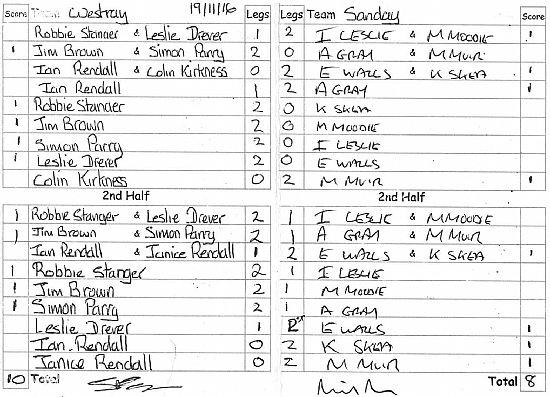 Score Team Westray 19/11/16 Legs Legs Team Sanday Score
Robbie Stanger & Leslie Drever 1 2 I LESLIE & M MOODIE 1
1 Jim Brown & Simon Parry 2 0 A GRAY & M MUIR
Ian Rendall & Colin Kirkness 0 2 E WALLS & K SKEA 1
Ian Rendall 1 2 A GRAY 1
1 Robbie Stanger 2 0 K SKEA
1 Jim Brown 2 0 M MOODIE
1 Simon Parry 2 0 I LESLIE
1 Leslie Drever 2 0 E WALLS
Colin Kirkness 0 2 M MUIR 1
2nd Half 2nd Half
1 Robbie Stanger & Leslie Drever 2 1 I LESLIE & M MOODIE
1 Jim Brown & Simon Parry 2 1 A GRAY & M MUIR
Ian Rendall & Janice Rendall 1 2 E WALLS & K SKEA 1
1 Robbie Stanger 2 1 I LESLIE
1 Jim Brown 2 1 M MOODIE
1 Simon Parry 2 1 A GRAY
Leslie Drever 1 E WALLS 1
Ian Rendall 0 2 K SKEA 1
Janice Rendall 0 2 M MUIR 1
10 Total Total 8